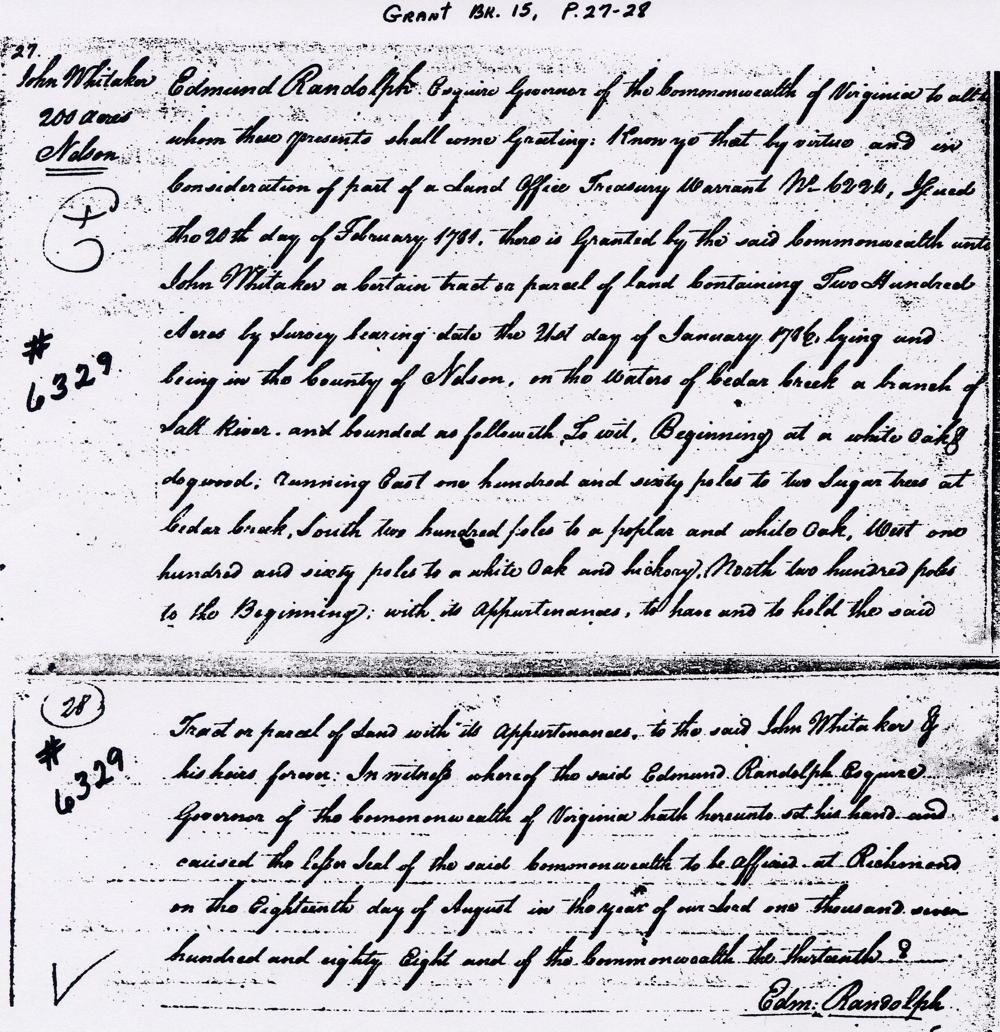 GRANT BK. 15, P. 27-28
27.
John Whitaker
200 acres
Nelson
# 6329
Edmund Randolph Esquire Governor of the Commonwealth of Virginia to all to
whom these presents shall come Greeting: Know ye that by virtue and in
Consideration of part of a Land Office Treasury Warrant No 6224, Issued
the 20th day of February 1781, there is Granted by the said Commonwealth unto
John Whitaker a Certain tract or parcel of land Containing Two Hundred
Acres by Survey bearing date the 21st day of January 1786, lying and
being in the County of Nelson, on the Waters of Cedar Creek a branch of
Salt River. and bounded as followeth, To wit, Beginning at a white Oak &
dogwood; running East one hundred and sixty poles to two Sugar trees at
Cedar Creek, South two hundred poles to a poplar and white Oak, West one
hundred and sixty poles to a white Oak and hickory, North two hundred poles
to the Beginning; with its Appurtenances, to have and to hold the said
28
# 6329
Tract or parcel of Land with its Appurtenances, to the said John Whitaker &
his heirs forever: In witness whereof the said Edmund Randolph Esquire
Governor of the Commonwealth of Virginia hath hereunto set his hand and
caused the lesser Seal of the said Commonwealth to be affixed at Richmond
on the Eighteenth day of August in the year of our Lord one thousand seven
hundred and eighty Eight and of the Commonwealth the thirteenth
Edm: Randolph